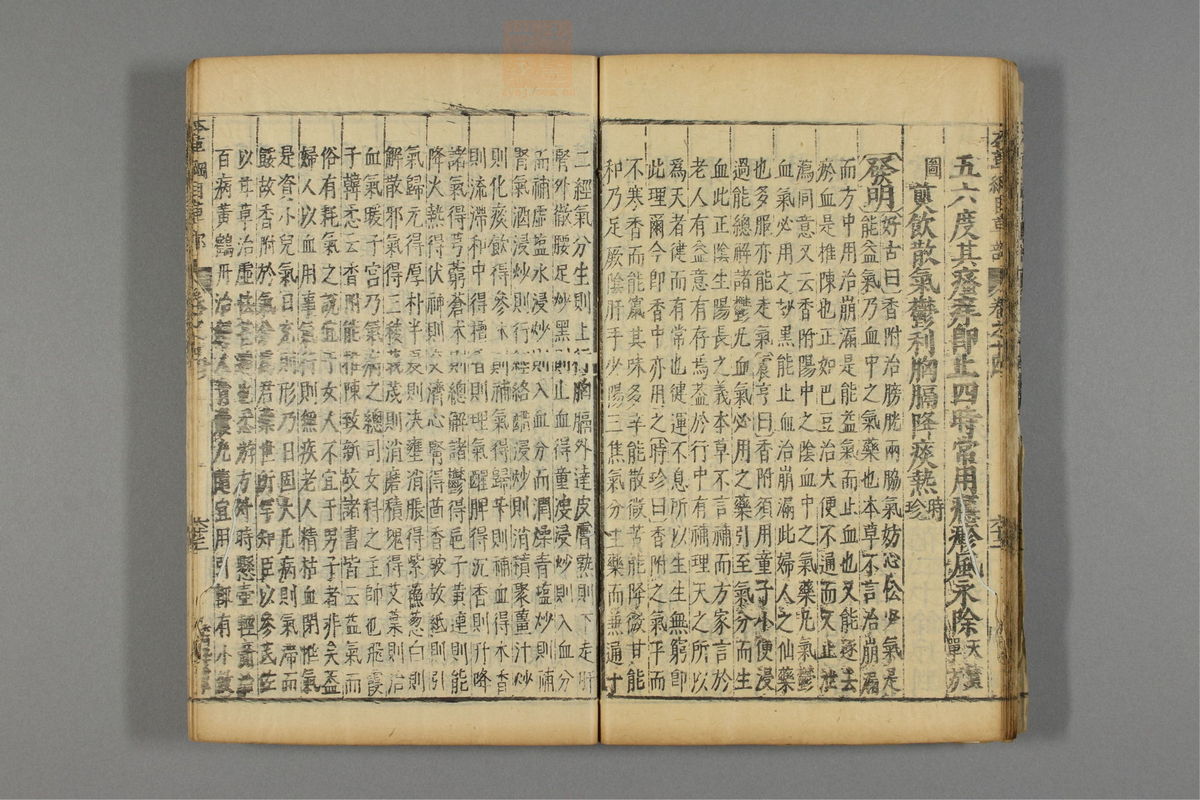 五六度其瘙痒即止四時常用癮疹風永除天寳單方
圖煎飲散氣鬱利胸膈降痰熱時珍
發明好古曰香附治膀胱兩脇氣妨心忪少氣是
能益氣乃血中之氣藥也本草不言治崩漏
而方中用治崩漏是能益氣而止血也又能逐去
瘀血是推陳也正如巴豆治大便不通而又止泄
瀉同意又云香附陽中之陰血中之氣藥凡氣鬱
血氣必用之炒黑能止血治崩漏此婦人之仙藥
也多服亦能走氣震亨曰香附須用童子小便浸
過能總解諸鬱凡血氣必用之藥引至氣分而生
血此正陰生陽長之義本草不言補而方家言於
老人有益意有存焉蓋於行中有補理天之所以
爲天者健而有常也健運不息所以生生無窮即
此理爾今即香中亦用之時珍曰香附之氣平而
不寒香而能竄其味多辛能散微苦能降微甘能
和乃足厥陰肝手少陽三焦氣分主藥而兼通十
二經氣分生則上行胸膈外達皮膚熟則下走肝
腎外徹腰足炒黑則止血得童溲浸炒則入血分
而補虛鹽水浸炒則入血分而潤燥青鹽炒則補
腎氣酒浸炒則行經絡醋浸炒則消積聚薑汁炒
則化痰飲得參朮則補氣得歸芐則補血得木香
則流滯和中得檀香則理氣醒脾得沉香則升降
諸氣得芎藭蒼朮則總解諸鬱得巵子黃連則能
降火熱得伏神則交濟心腎得茴香破故紙則引
氣歸元得厚朴半夏則決壅消脹得紫蘇葱白則
解散邪氣得三稜莪茂則消磨積塊得艾葉則治
血氣暖子宮乃氣病之總司女科之主帥也飛霞
子韓𢘅云香附能推陳致新故諸書皆云益氣而
俗有耗氣之說宜于女人不宜于男子者非矣蓋
婦人以血用事氣行則無疾老人精枯血閉惟氣
是資小兒氣日充則形乃日固大凡病則氣滯而
餒故香附於氣分爲君藥世所罕知臣以參芪佐
以甘草治虛怯甚速也
百病黃鶴丹治